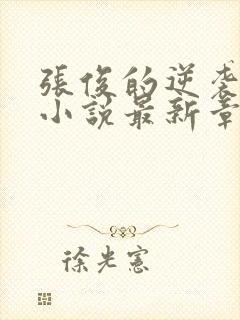 張俊的逆袭
小說最新章
徐光憲